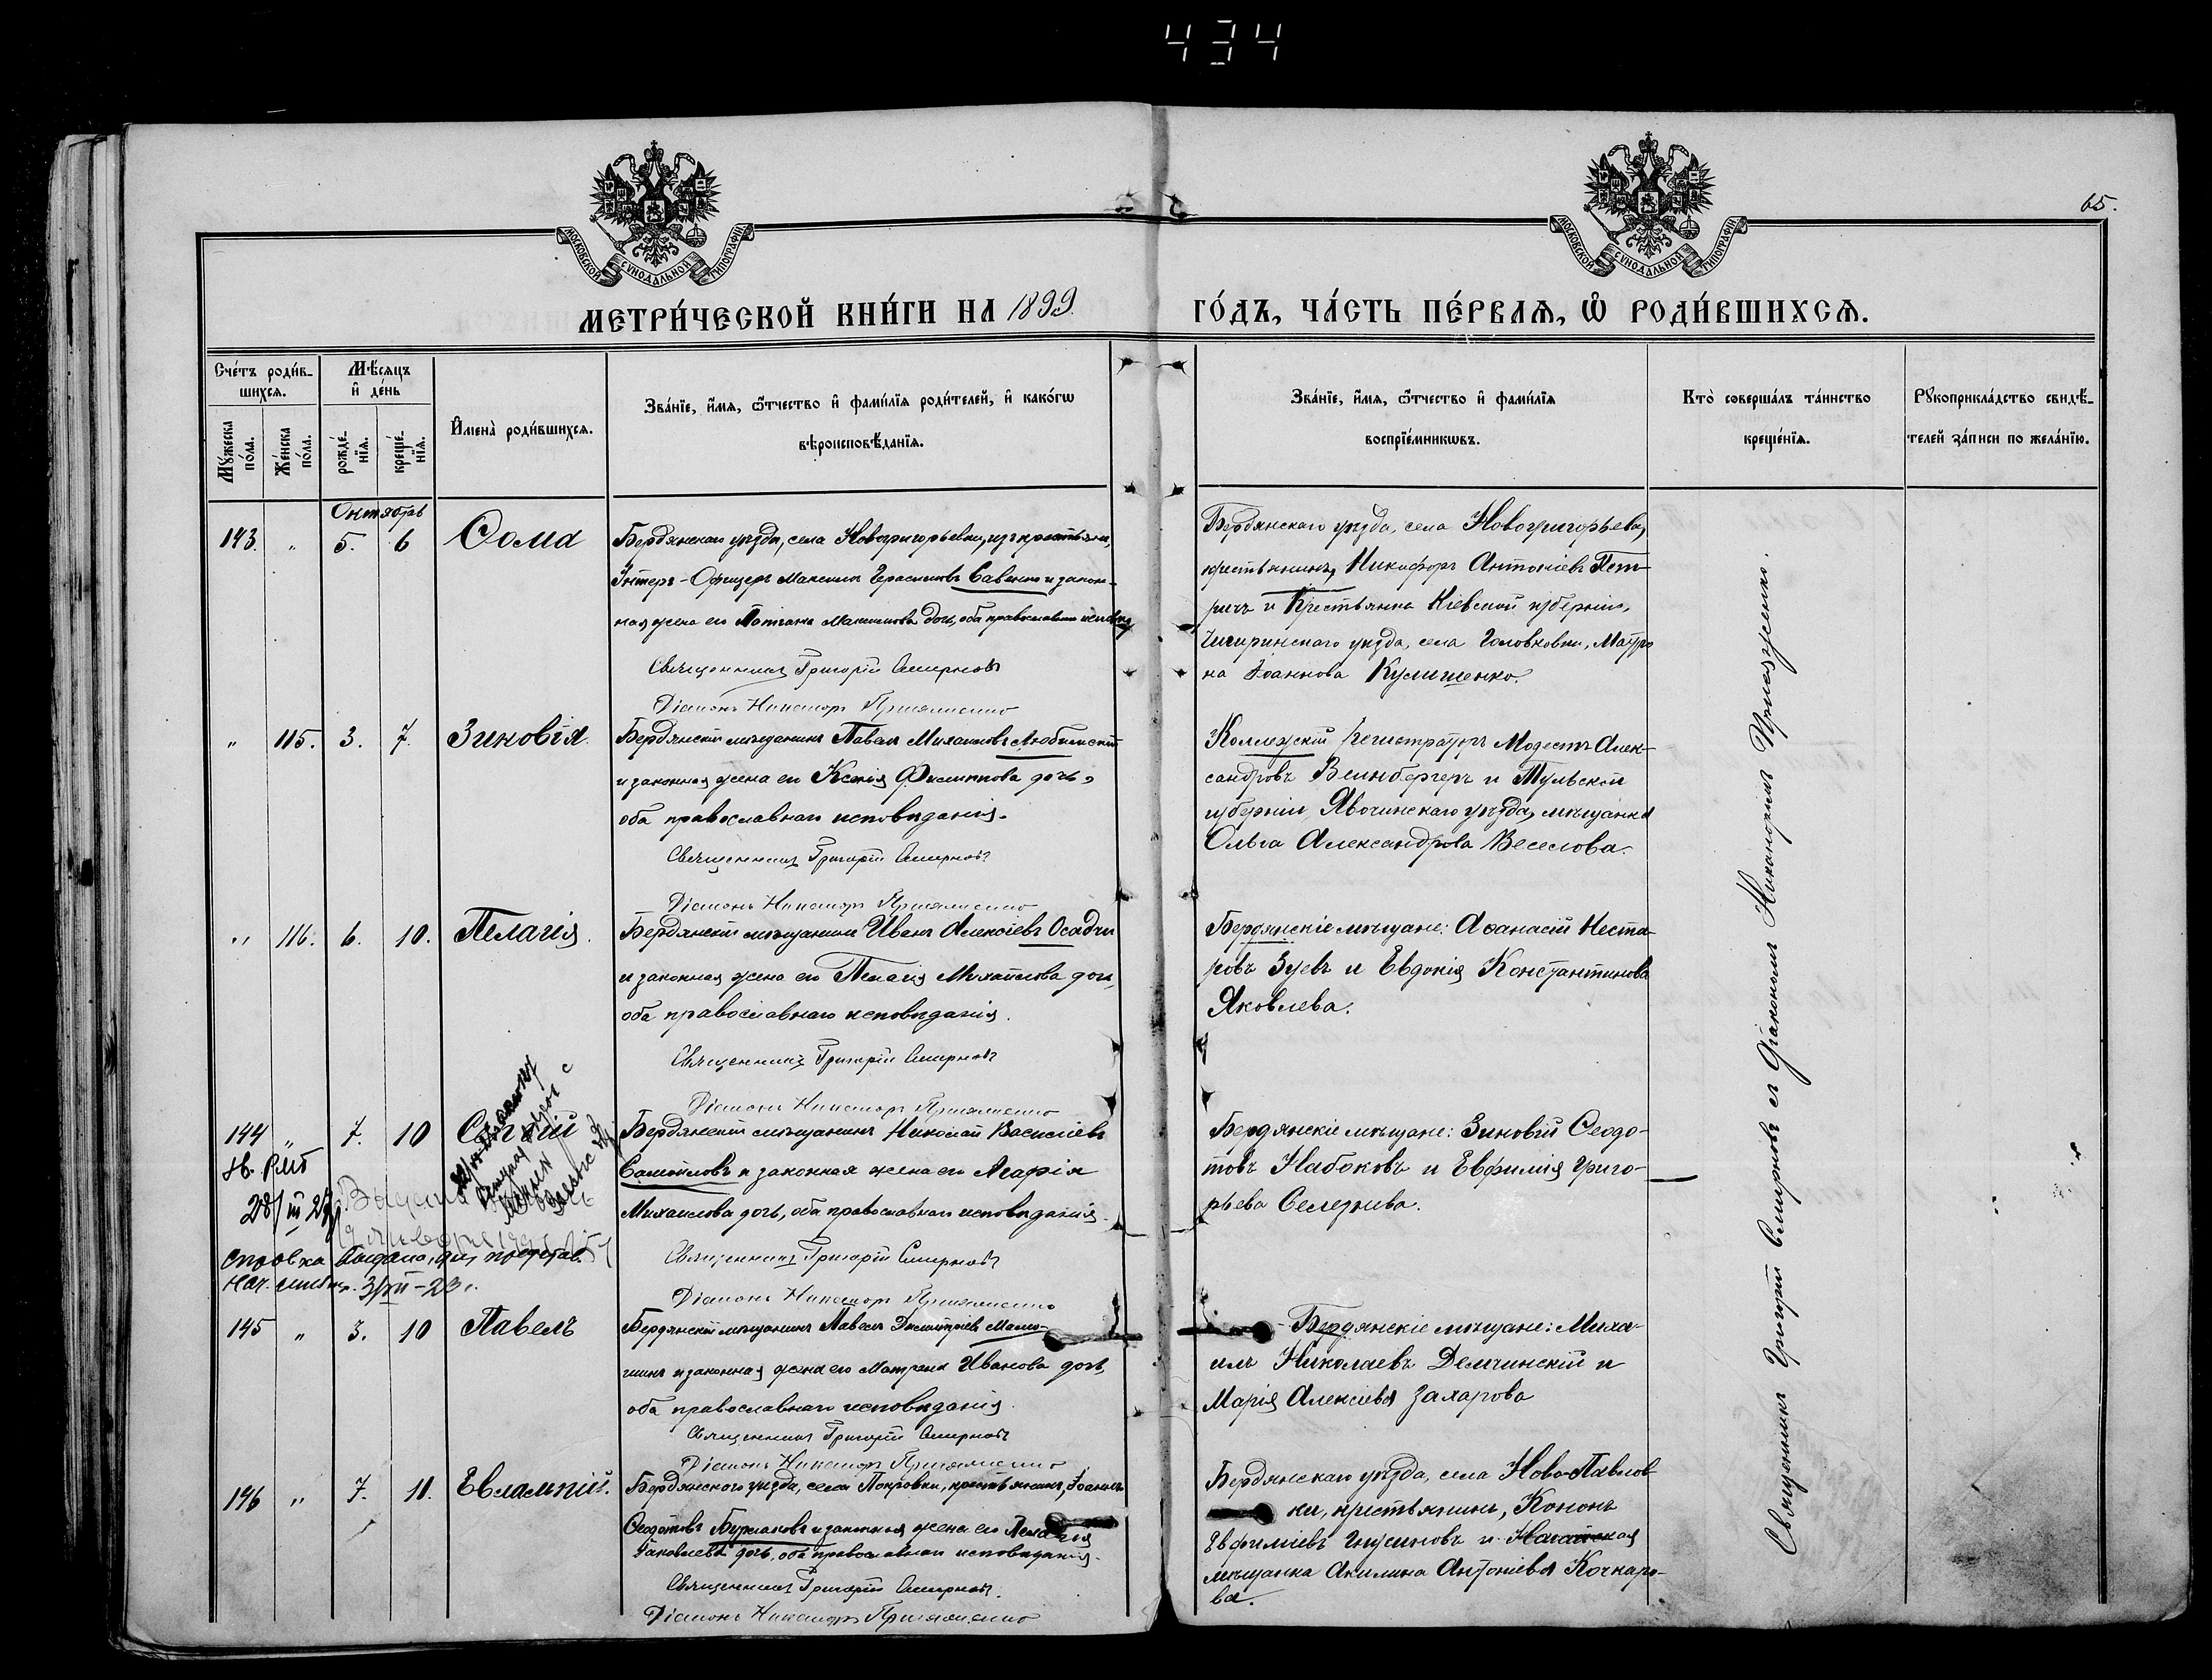 434
65.
МОСКОВСКОЙ СУНОДАЛЬНОЙ ТИПОГРАФІИ
МОСКОВСКОЙ СУНОДАЛЬНОЙ ТИПОГРАФІИ
МЕТРИ́ЧЕСКОЙ КНИ́ГИ НА 1899
ГО́ДЪ, ЧА́СТЬ ПЕ́РВАѦ, Ѡ҆ РОДИ́ВШИХСѦ.
Сче́тъ роди́в-
шихсѧ.
Мѣ́сѧцъ
и҆ де́нь
Му́жеска по́ла.
Же́нска по́ла.
рожде́-
нїѧ.
креще́-
нїѧ.
И҆мена̀ роди́вшихсѧ.
Зва́нїе, и҆́мѧ, ѻ҆́тчество и҆ фами́лїѧ роди́телей, и҆ како́гѡ
вѣроисповѣ́данїѧ.
Зва́нїе, и҆́мѧ, ѻ҆́тчество и҆ фами́лїѧ
воспрїе́мникѡвъ.
Кто̀ соверша́лъ та́инство
креще́нїѧ.
Рꙋкоприкла́дство свидѣ́-
телей за́писи по жела́нїю.
Октябрь
143. " 5. 6 Ѳома
Бердянскаго уѣзда, села Новогригорьевки, изъ крестьянъ,
Унтеръ-Офицеръ Максимъ Герасимовъ Савенко и закон-
ная жена его Татіана Максимова дочь, оба православнаго исповѣд.
Священникъ Григорій Смирновъ
Діаконъ Никаноръ Прилеженко
Бердянскаго уѣзда, села Новогригорьевки,
крестьянинъ, Никифоръ Антоніевъ Пет-
ричъ и Крестьянка Кіевской губерніи,
Чигиринскаго уѣзда, села Головковки, Матро
на Іоаннова Кулишенко.
" 115. 3. 7. Зиновія.
Бердянскій мѣщанинъ Павелъ Михаиловъ Любимскій
и законная жена его Ксенія Филиппова дочь,
оба православнаго исповѣданія.
Священникъ Григорій Смирновъ
Діаконъ Никаноръ Прилеженко
Коллежскій Регистраторъ Модестъ Алек-
сандровъ Веинбергеръ и Тульской
губерніи, уѣзда, мѣщанка
Ольга Александрова Веселова.
" 116. 6. 10. Пелагія.
Бердянскій мѣщанинъ Иванъ Алексіевъ Осадчи
и законная жена его Пелагія Михаилова дочь,
оба православнаго исповѣданія.
Священникъ Григорій Смирновъ
Діаконъ Никаноръ Прилеженко
Бердянскіе мѣщане: Аѳанасій Несто-
ровъ Зуевъ и Евдокія Константинова
Яковлева.
144 " 7. 10 Сергій
Бердянскій мѣщанинъ Николай Василіевъ
Самойловъ и законная жена его Агафія
Михаилова дочь, оба православнаго исповѣданія.
Священникъ Григорій Смирновъ
Діаконъ Никаноръ Прилеженко
Бердянскіе мѣщане: Зиновій Ѳеодо-
товъ Набоковъ и Евфимія Григо-
рьева Селезнева.
28/III 27
справка выдана для представ.
145 " 3. 10 Павелъ
Бердянскій мѣщанинъ Павелъ Димитріевъ
и законная жена его Матрона Иванова дочь,
оба православнаго исповѣданія.
Священникъ Григорій Смирновъ
Діаконъ Никаноръ Прилеженко
Бердянскіе мѣщане: Миха-
илъ Николаевъ Демчинскій и
Марія Алексіева Захарова
146 " 7. 11. Евлампій.
Бердянскаго уѣзда, села Покровки, крестьянинъ, Іоаннъ
Ѳеодотовъ Бурлаковъ и законная жена его Пелагія
Іаковлева дочь, оба православнаго исповѣданія.
Священникъ Григорій Смирновъ.
Діаконъ Никаноръ Прилеженко
Бердянскаго уѣзда, села Ново-Павлов-
ки, крестьянинъ, Кононъ
Евфиміевъ и Ногайская
мѣщанка Акилина Антоніева Кочкаре-
ва.
Священникъ Григорій Смирновъ съ Діакономъ Никаноромъ Прилеженко.